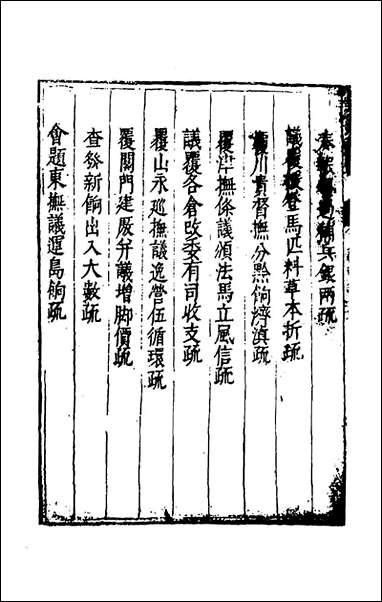 兵銀兩疏
議覆登馬匹料草本折疏
川貴督撫分黔餉濟滇疏
覆津撫條議頒法馬立風信疏
議覆各倉改委有司收支疏
覆山永巡撫議造營伍循環疏
覆關門建厫并議增脚價疏
查發新餉出入大數疏
會題東撫議運島餉疏